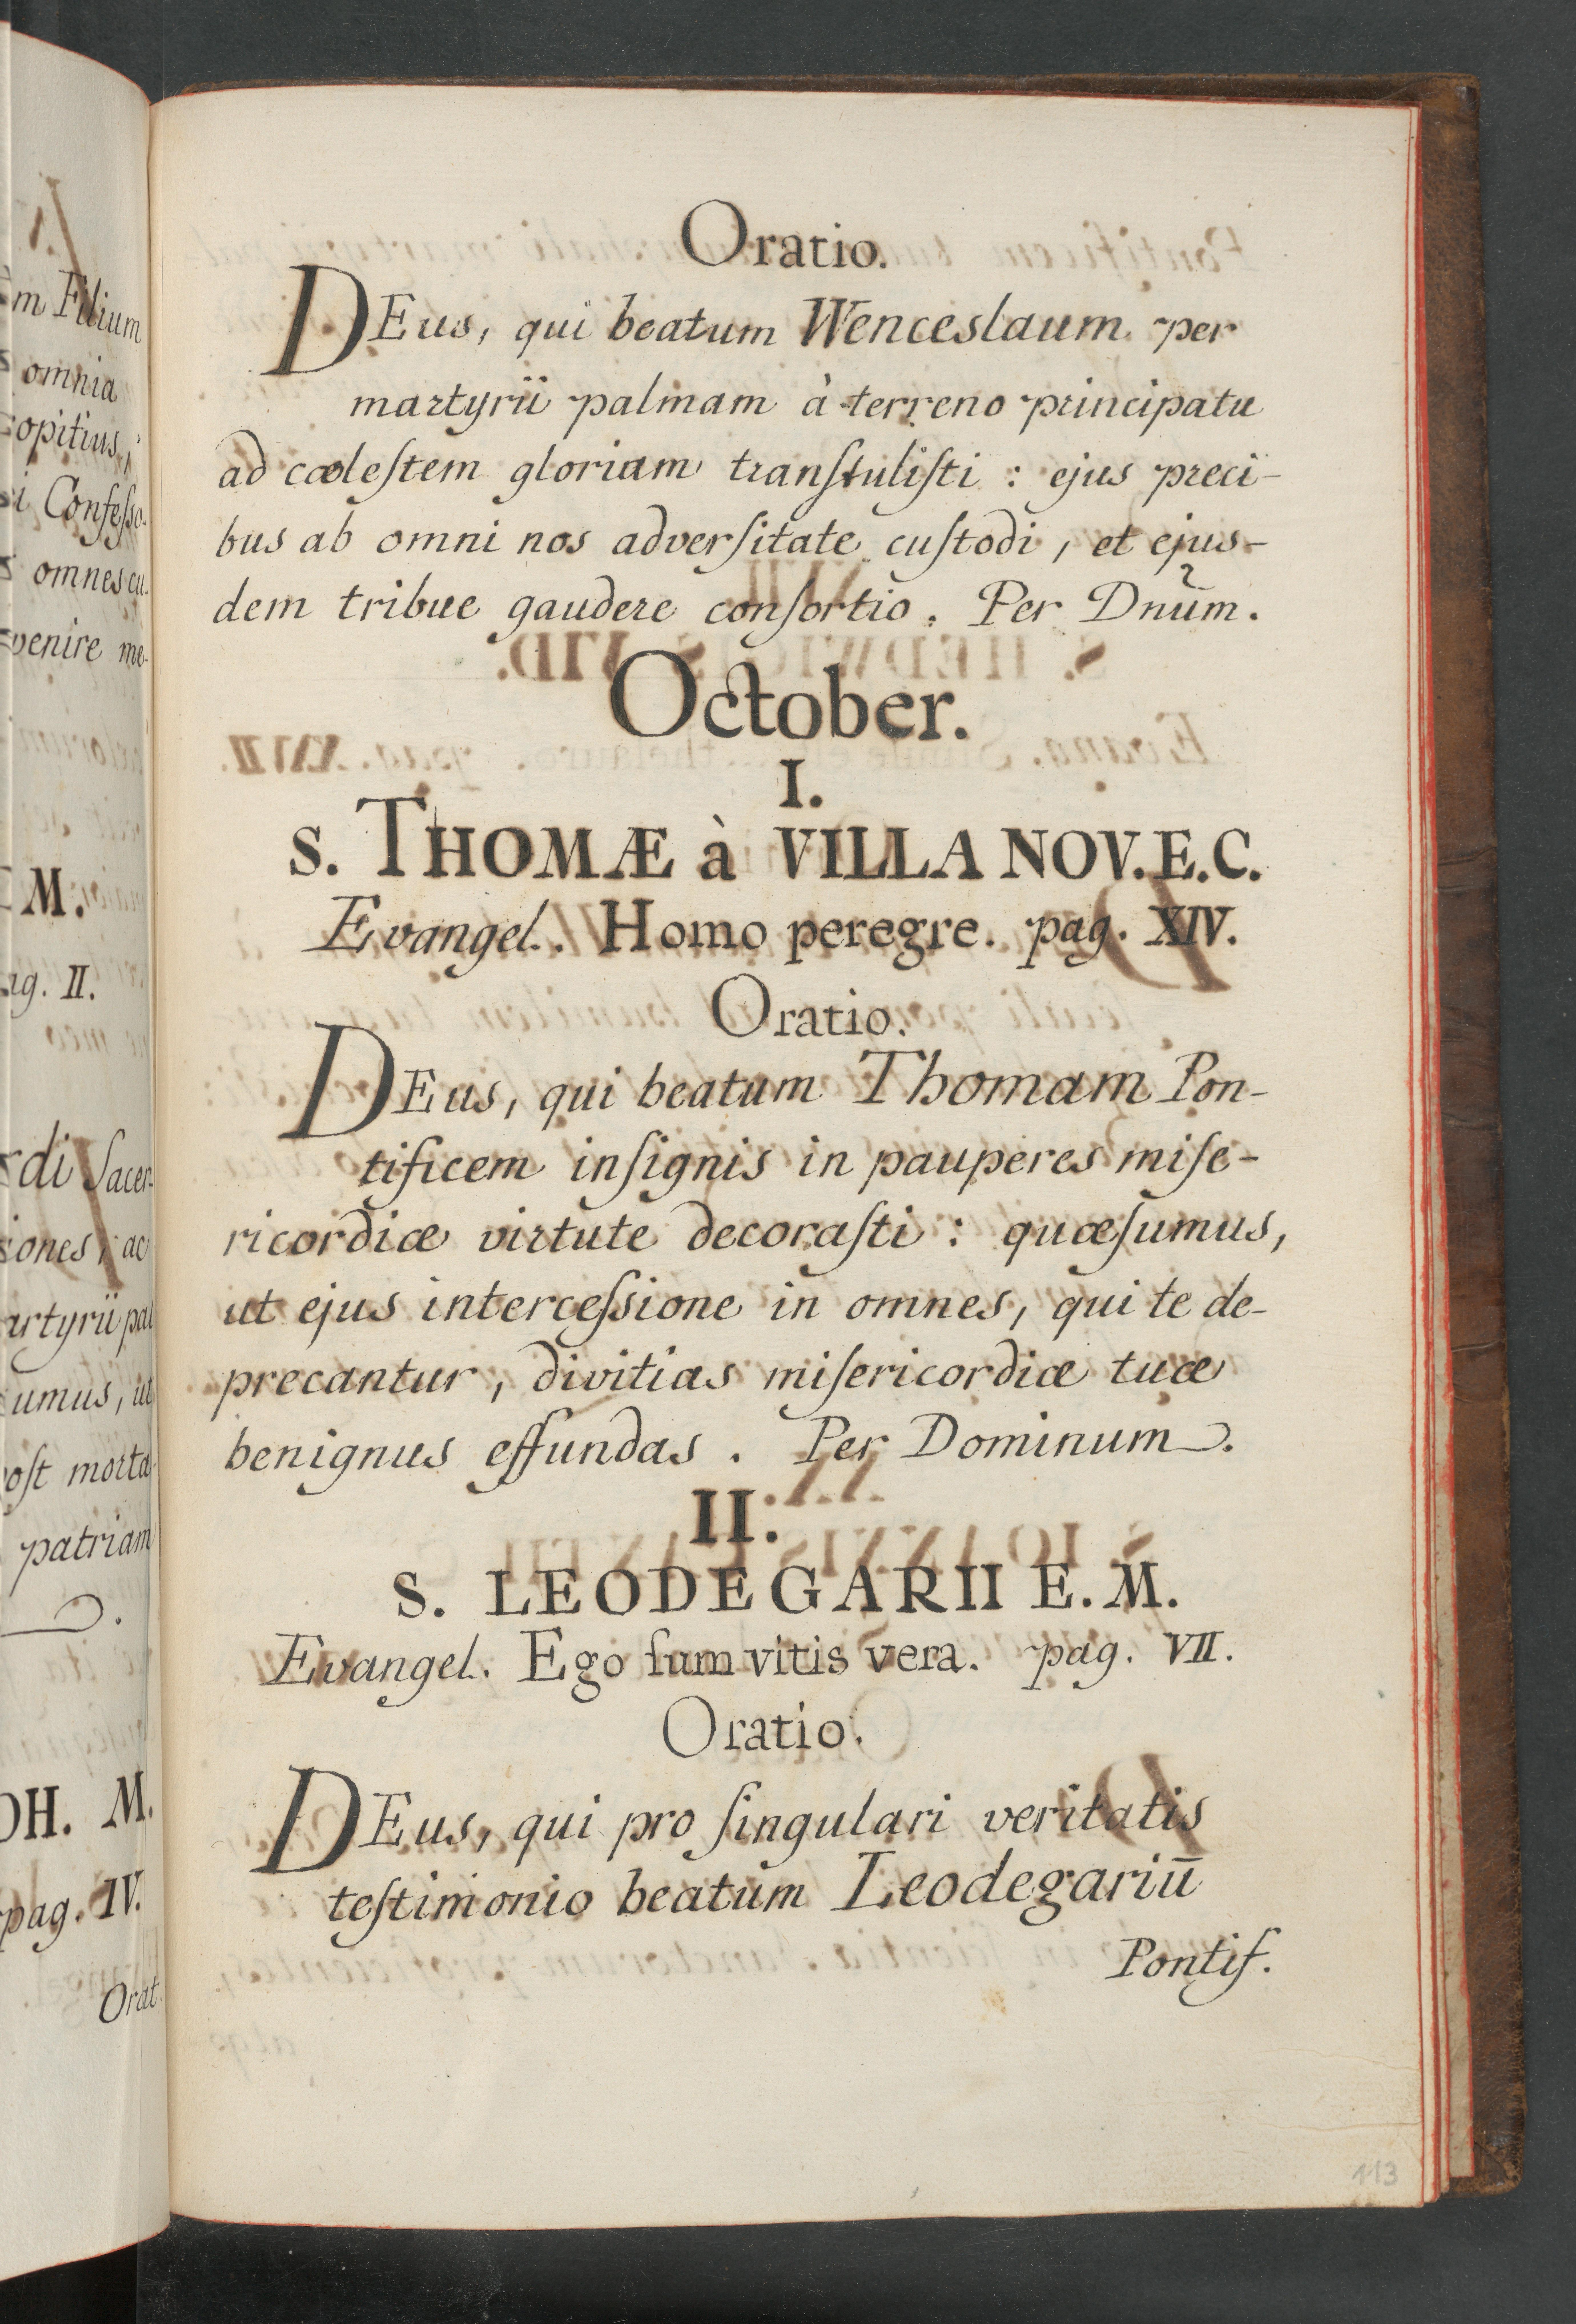 m Filium
omnia
opitius,
i Confeſſo-
omnes cu-
venire me-
M.
ag. II.
di Sacer-
ones, ac
artyrii pal
umus, ut
oſt morta-
patriam
OH. M.
pag. IV.
Orat.
Oratio.
DEus, qui beatum Wenceslaum per
martyrii palmam à terreno principatu
ad cœleſtem gloriam tranſtuliſti : ejus preci-
bus ab omni nos adverſitate cuſtodi, et ejus-
dem tribue gaudere conſortio. Per Dnũm.
October.
I.
S. THOMÆ à VILLA NOV. E. C.
Evangel. Homo peregre. pag. XIV.
Oratio.
DEus, qui beatum Thomam Pon-
tificem inſignis in pauperes miſe-
ricordiæ virtute decoraſti : quæſumus,
ut ejus interceſſione in omnes, qui te de-
precantur, divitias miſericordiæ tuæ
benignus effundas. Per Dominum.
II.
S. LEODEGARII E. M.
Evangel. Ego ſum vitis vera. pag. VII.
Oratio.
DEus, qui pro ſingulari veritatis
teſtimonio beatum Leodegariū
Pontif.
113